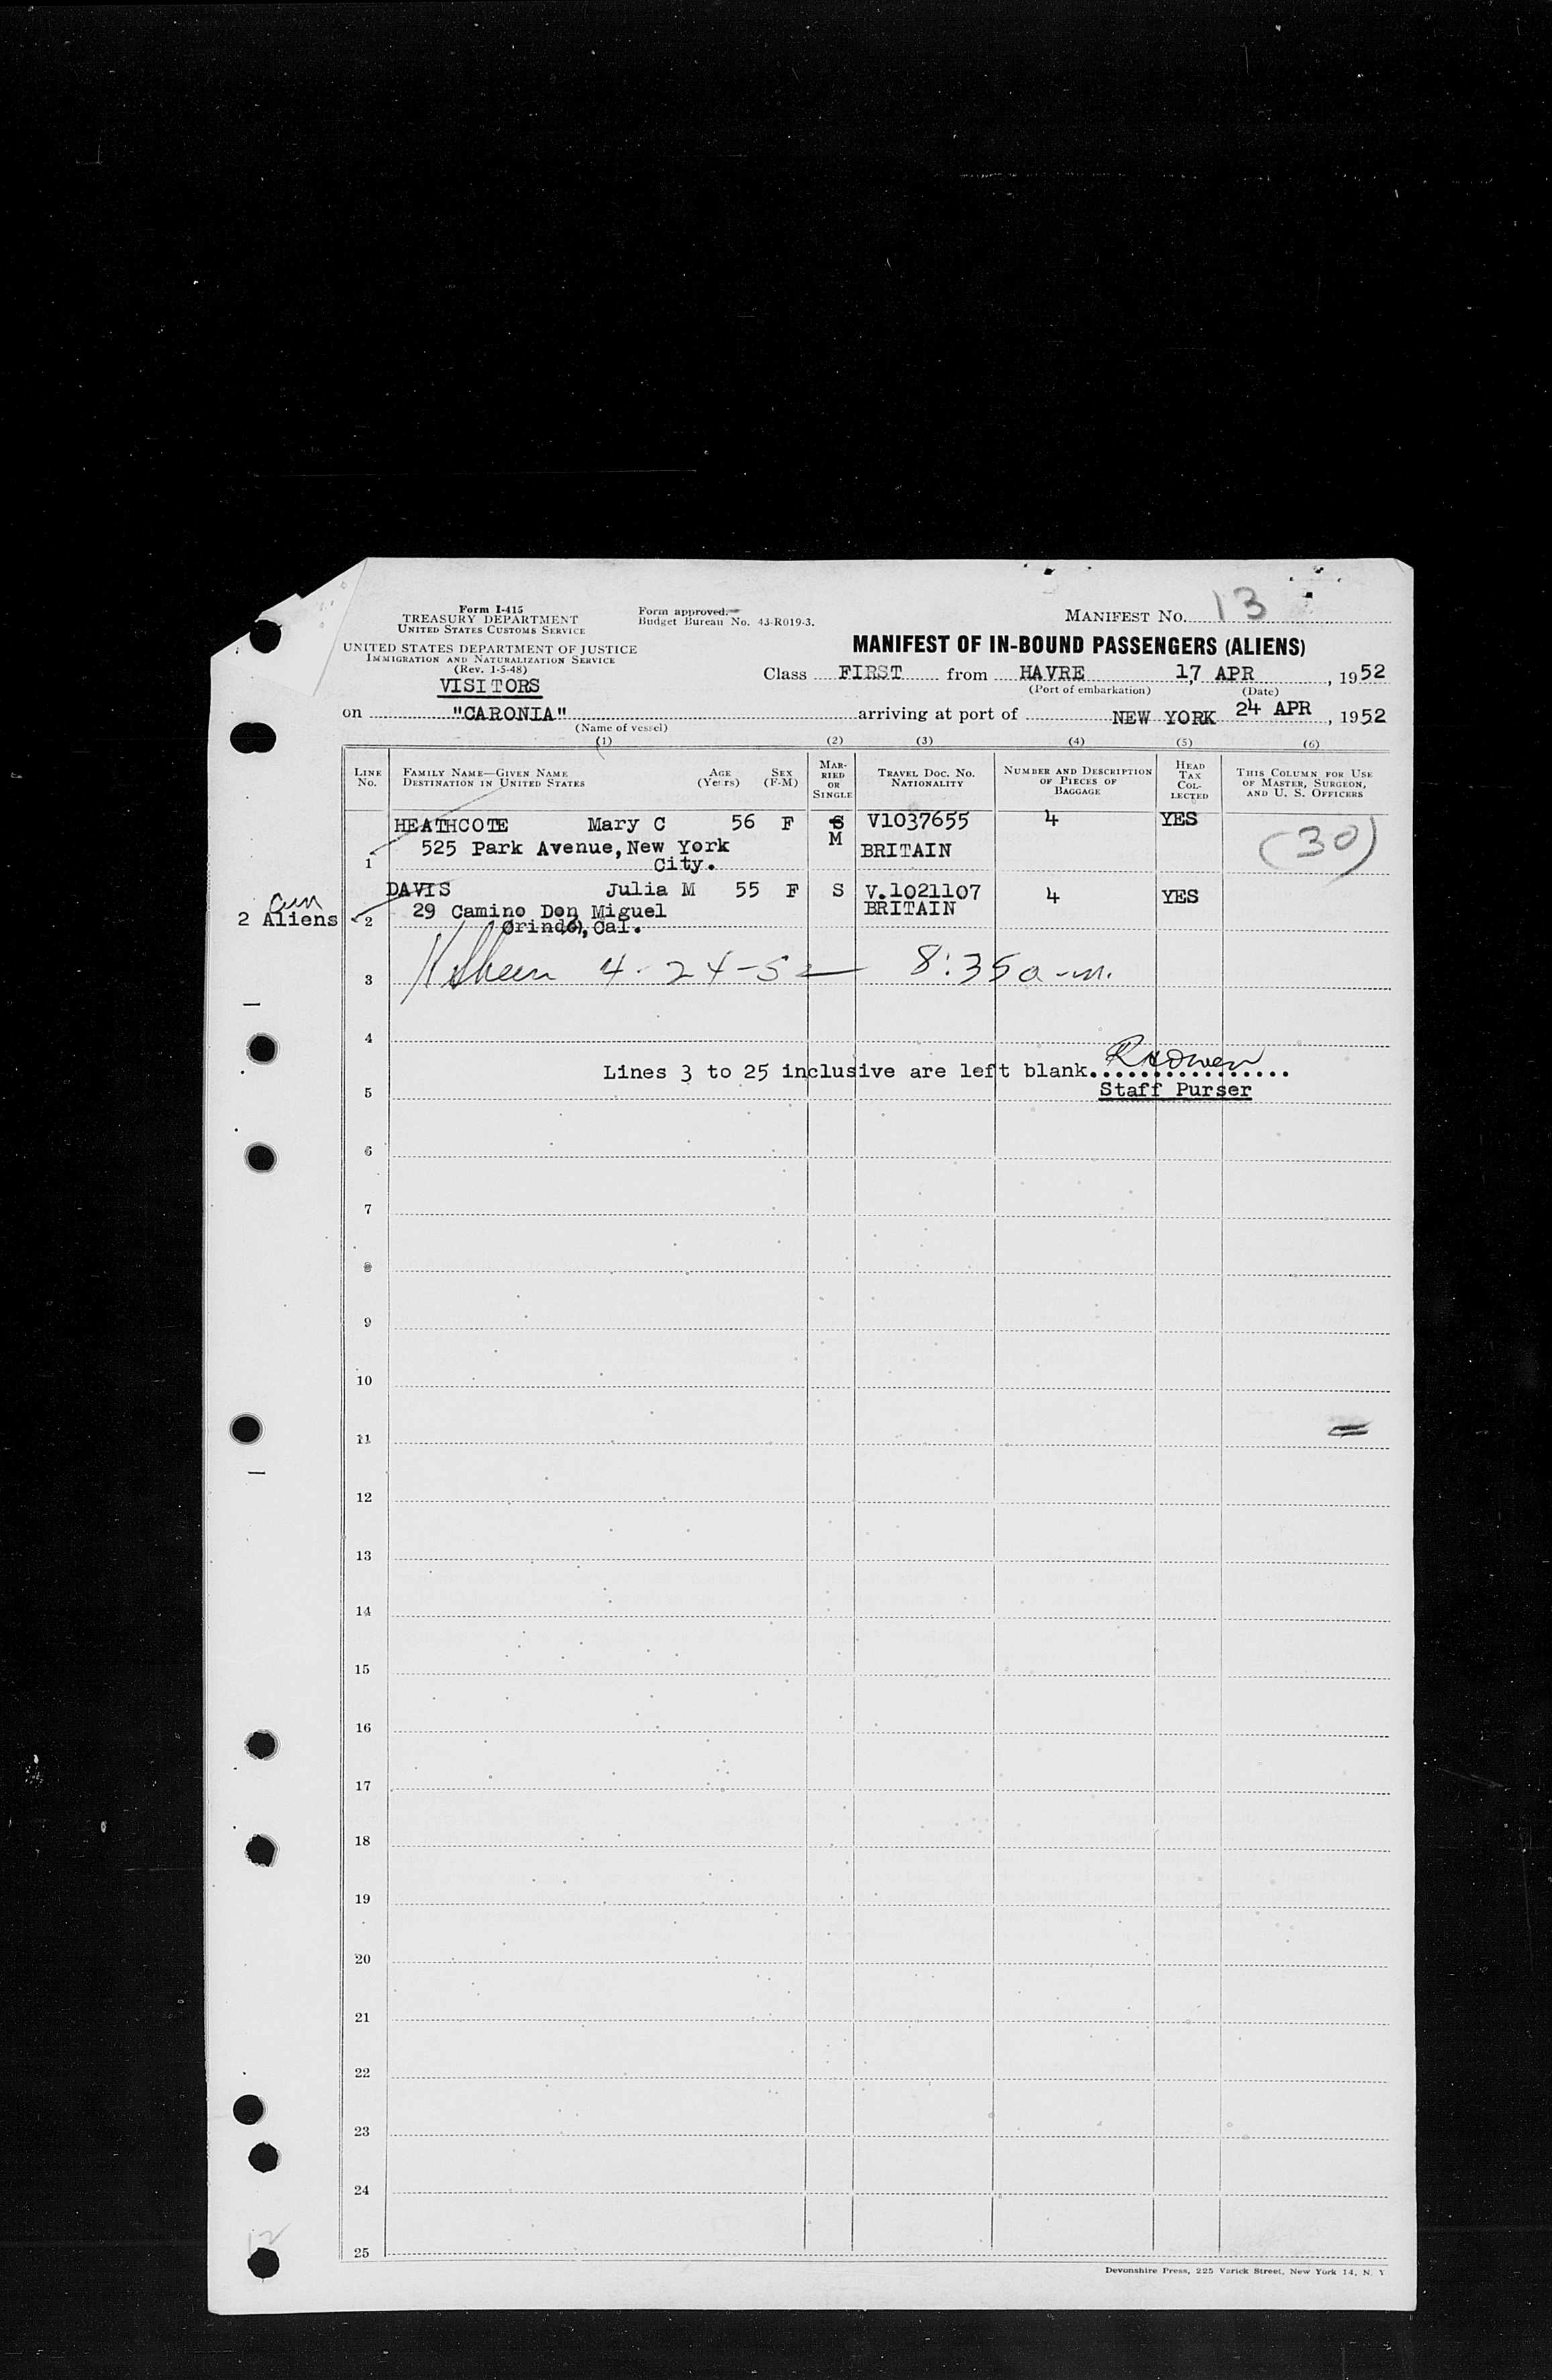 Form I-415
TREASURY DEPARTMENT
UNITED STATES CUSTOMS SERVICE
Form approved.
Budget Bureau No. 43-R019-3.
MANIFEST NO. 13
UNITED STATES DEPARTMENT OF JUSTICE
IMMIGRATION AND NATURALIZATION SERVICE
(Rev. 1-5-48)
VISITORS
MANIFEST OF IN-BOUND PASSENGERS (ALIENS)
Class FIRST from HAVRE 17 APR, 1952
(Port of embarkation) (Date)
on "CARONIA" arriving at port of NEW YORK 24 APR, 1952
(Name of vessel)
(1) (2) (3) (4) (5) (6)
LINE NO.
FAMILY NAME—GIVEN NAME
DESTINATION IN UNITED STATES
AGE (Years)
SEX (F-M)
MARRIED OR SINGLE
TRAVEL DOC. NO.
NATIONALITY
NUMBER AND DESCRIPTION OF PIECES OF BAGGAGE
HEAD TAX COLLECTED
THIS COLUMN FOR USE OF MASTER, SURGEON, AND U. S. OFFICERS
HEATHCOTE Mary C 56 F S V1037655 4 YES
525 Park Avenue, New York M BRITAIN (30)
1 City.
DAVIS Julia M 55 F S V.1021107 4 YES
2 Aliens 2 29 Camino Don Miguel BRITAIN
Orinda, Cal.
3 4-24-52 8:35 a.m.
4
Lines 3 to 25 inclusive are left blank.
5 Staff Purser
6
7
8
9
10
11
12
13
14
15
16
17
18
19
20
21
22
23
24
25
12
Devonshire Press, 225 Varick Street, New York 14, N. Y